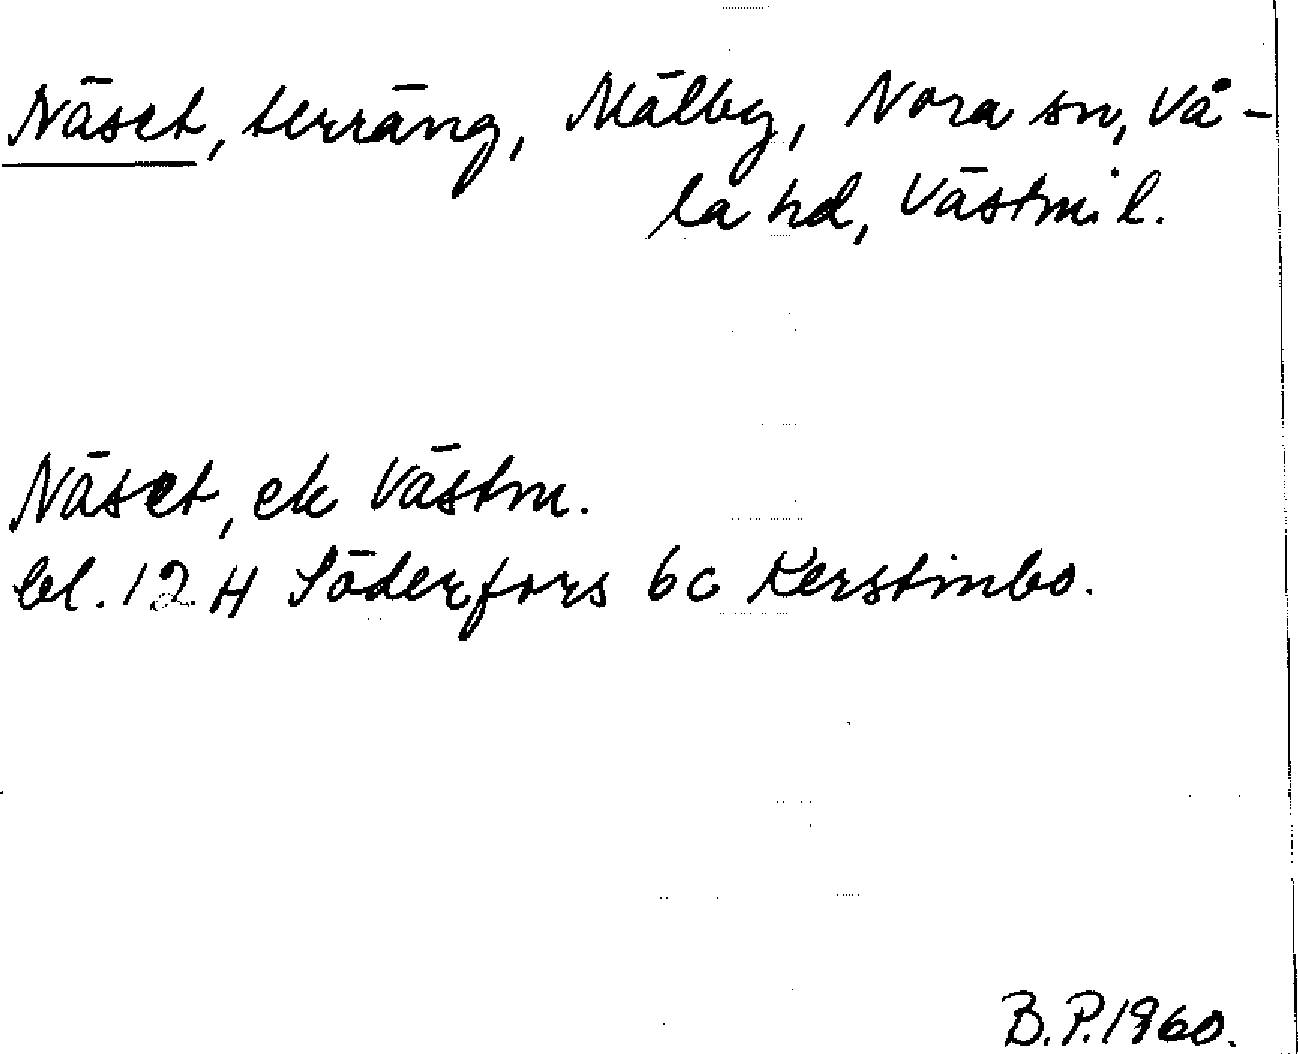 Näset, terräng, Mälby, Nora sn, Vå-
la hd, Västml.
Näset, ek Västm.
bl. 12 H Söderfors 6c Kerstinbo.
B.P. 1960.